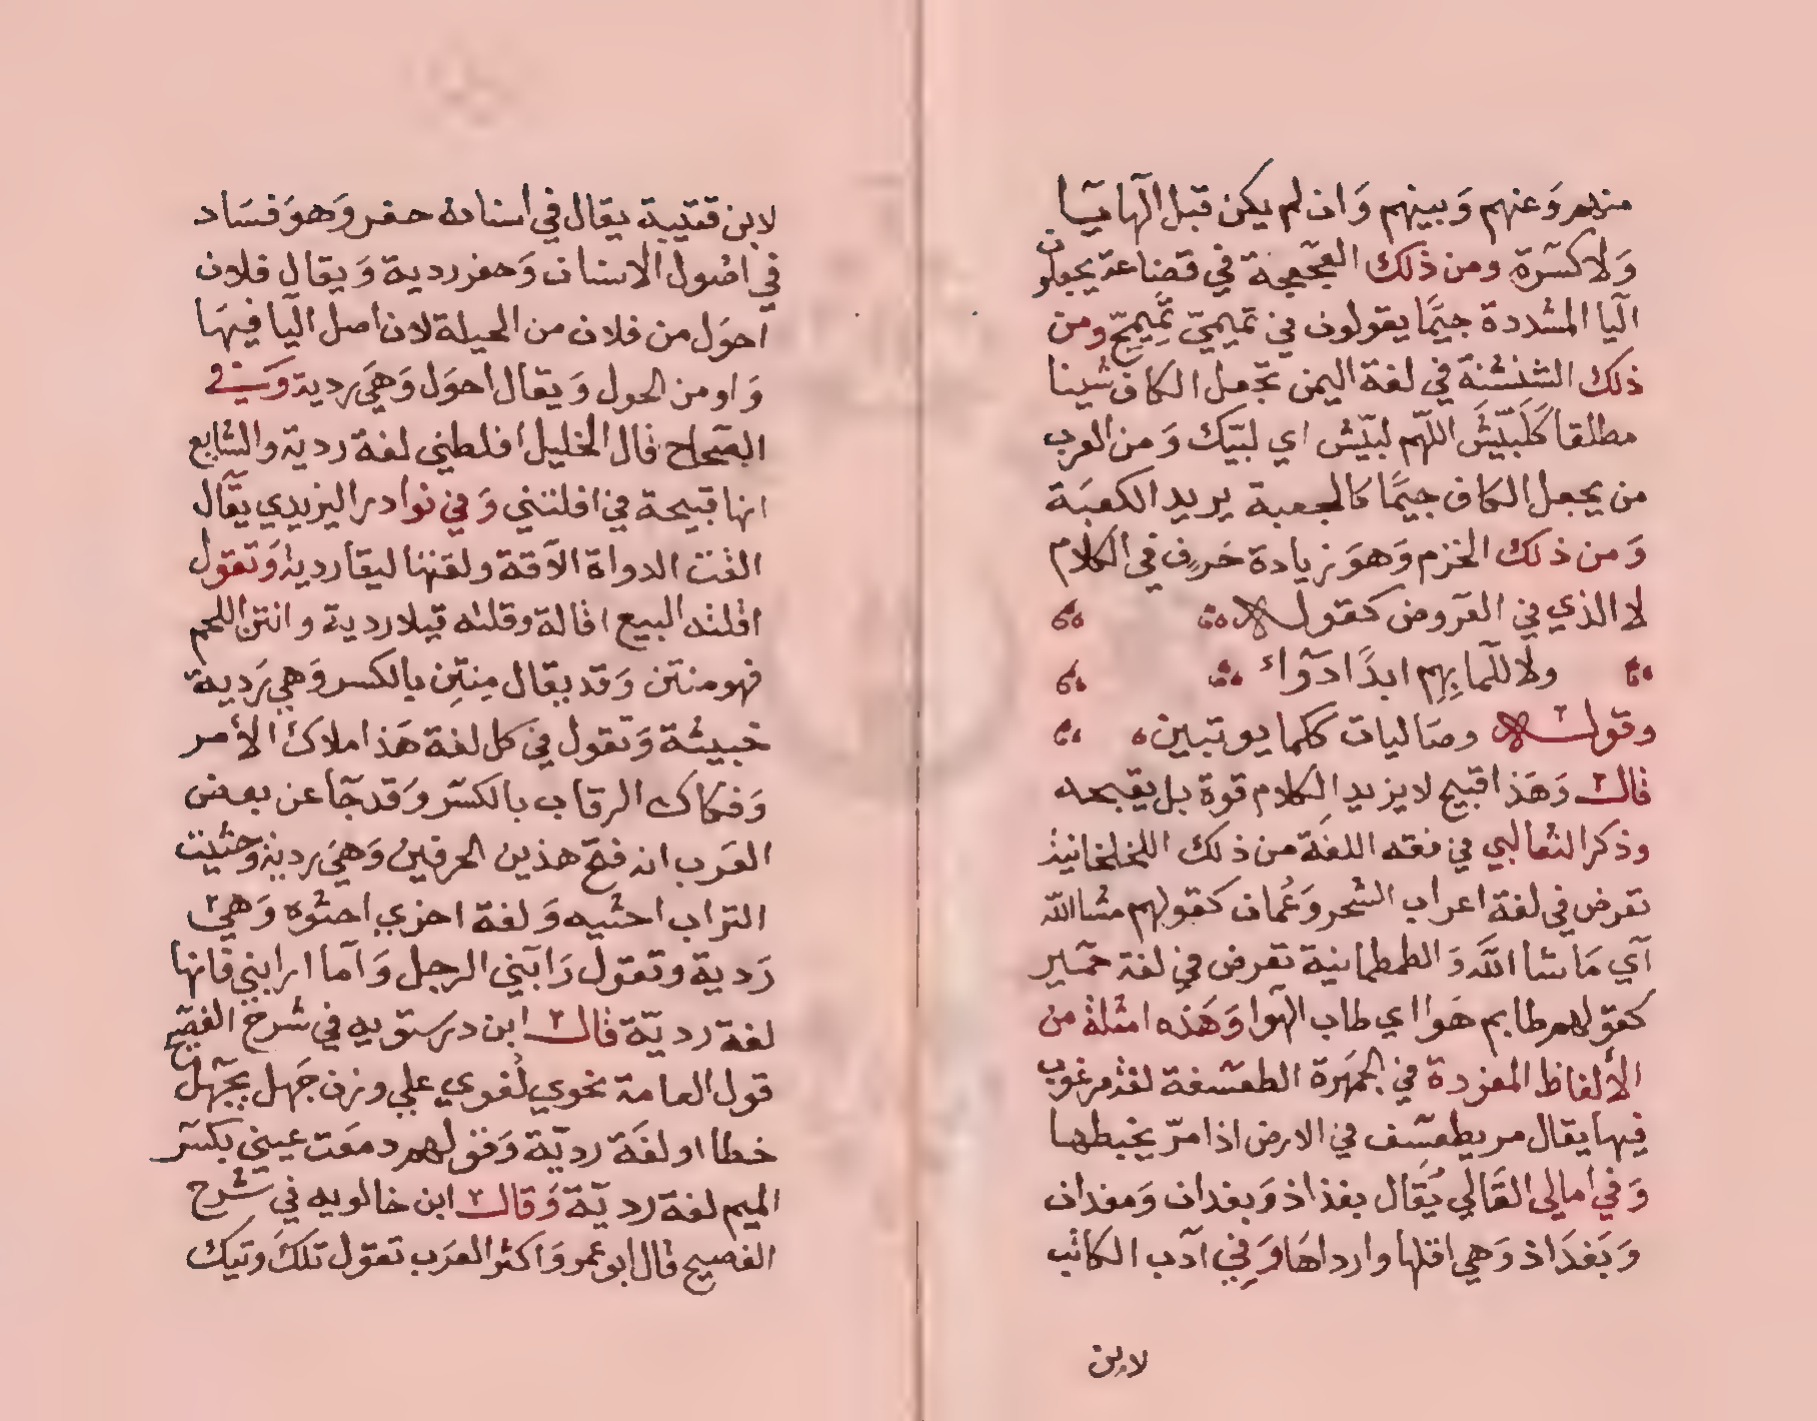 منهم وَعنهم وَبينهم وَان لم يكن قبل الهآ يآ
وَلا كسرة ومن ذلك العجعجة في قضاعة يجعلون
اليآ المشددة جيمًا يقولون في تميميّ تميمجّ ومن
ذلك الشنشنة في لغة اليمن تجعل الكاف شينا
مطلقا كَلَبّيْشَ اللّهم لبّيْش اي لبّيك وَمن العرب
من يجعل الكاف جيمًا كالجعبة يريد الكعبَة
وَمن ذلك الخزم وَهوَ زيادة حَرفٍ في الكلام
لا الذي في العَروض كقوله
ولا للما بِهِم ابدًا دَوآء
وقوله وصَاليات ككما يوتبين
قال وَهَذا قبيح لا يزيد الكلام قوة بل يقبحه
وذكر الثعالبي في فقه اللغة من ذلك اللخلخانية
تعرض في لغة اعراب الشحر وَعُمان كقولهم مشا الله
آي مَا شا اللَّه وَالطمطمانية تعرض في لغة حمير
كقولهم طاب هَوا اي طاب الهوا وَهَذه امثلة من
الألفاظ المفردة في الجمهَرة الطعسفة لغة مرغوب
فيها يقال مر يطعسف في الارض اذا مرّ يخبطها
وَفي امالي القَالي يُقَال بغذاذ وَبغدان وَمغدان
وَبَغدَاذ وَهي اقلها وارداهَا وَفي آدب الكاتب
لابن
لابن قتيبة يقال في اسنانه حفر وَهوَ فسَاد
في اصُول الاسنان وَحفر ردية وَيقال فلان
احوَل من فلان من الحيلة لان اصل اليآ فيهَا
وَاو من الحول وَيقال احوَل وَهيَ ردية وَفي
الصّحاح قال الخليل افلطني لغة رديّة والشايع
انها قبيحة في افلتني وَفي نوادر اليزيدي يقَال
القت الدواة الاقة ولقتها ليقا ردية وَتقول
اقلته البيع اقالة وقلته قيلا ردية وانتن اللحم
فهو منتن وَقد يقال مِنتِن بالكسر وَهي رَدية
خبيثة وَتقول في كل لغة هَذا ملاك الأمر
وَفكاك الرقاب بالكسر وَقد جآ عن بعض
العَرب انه فتح هذين الحرفين وَهيَ ردية وحثيت
التراب احثيه وَلغة اخري احثوه وَهي
رَدية وتقول رَابَني الرجل وَآما ارابني فانها
لغة رديّة قال ابن درستويه في شرح الفصيح
قول العامة نحوي لُغوي علي وزن جَهل يجهل
خطا او لغَة رديّة وَقولهم دمعَت عيني بكسر
الميم لغة رديّة وَقال ابن خالويه في شرح
الفصيح قال ابو عمر وَاكثر العَرب تقول تلكَ وتيك